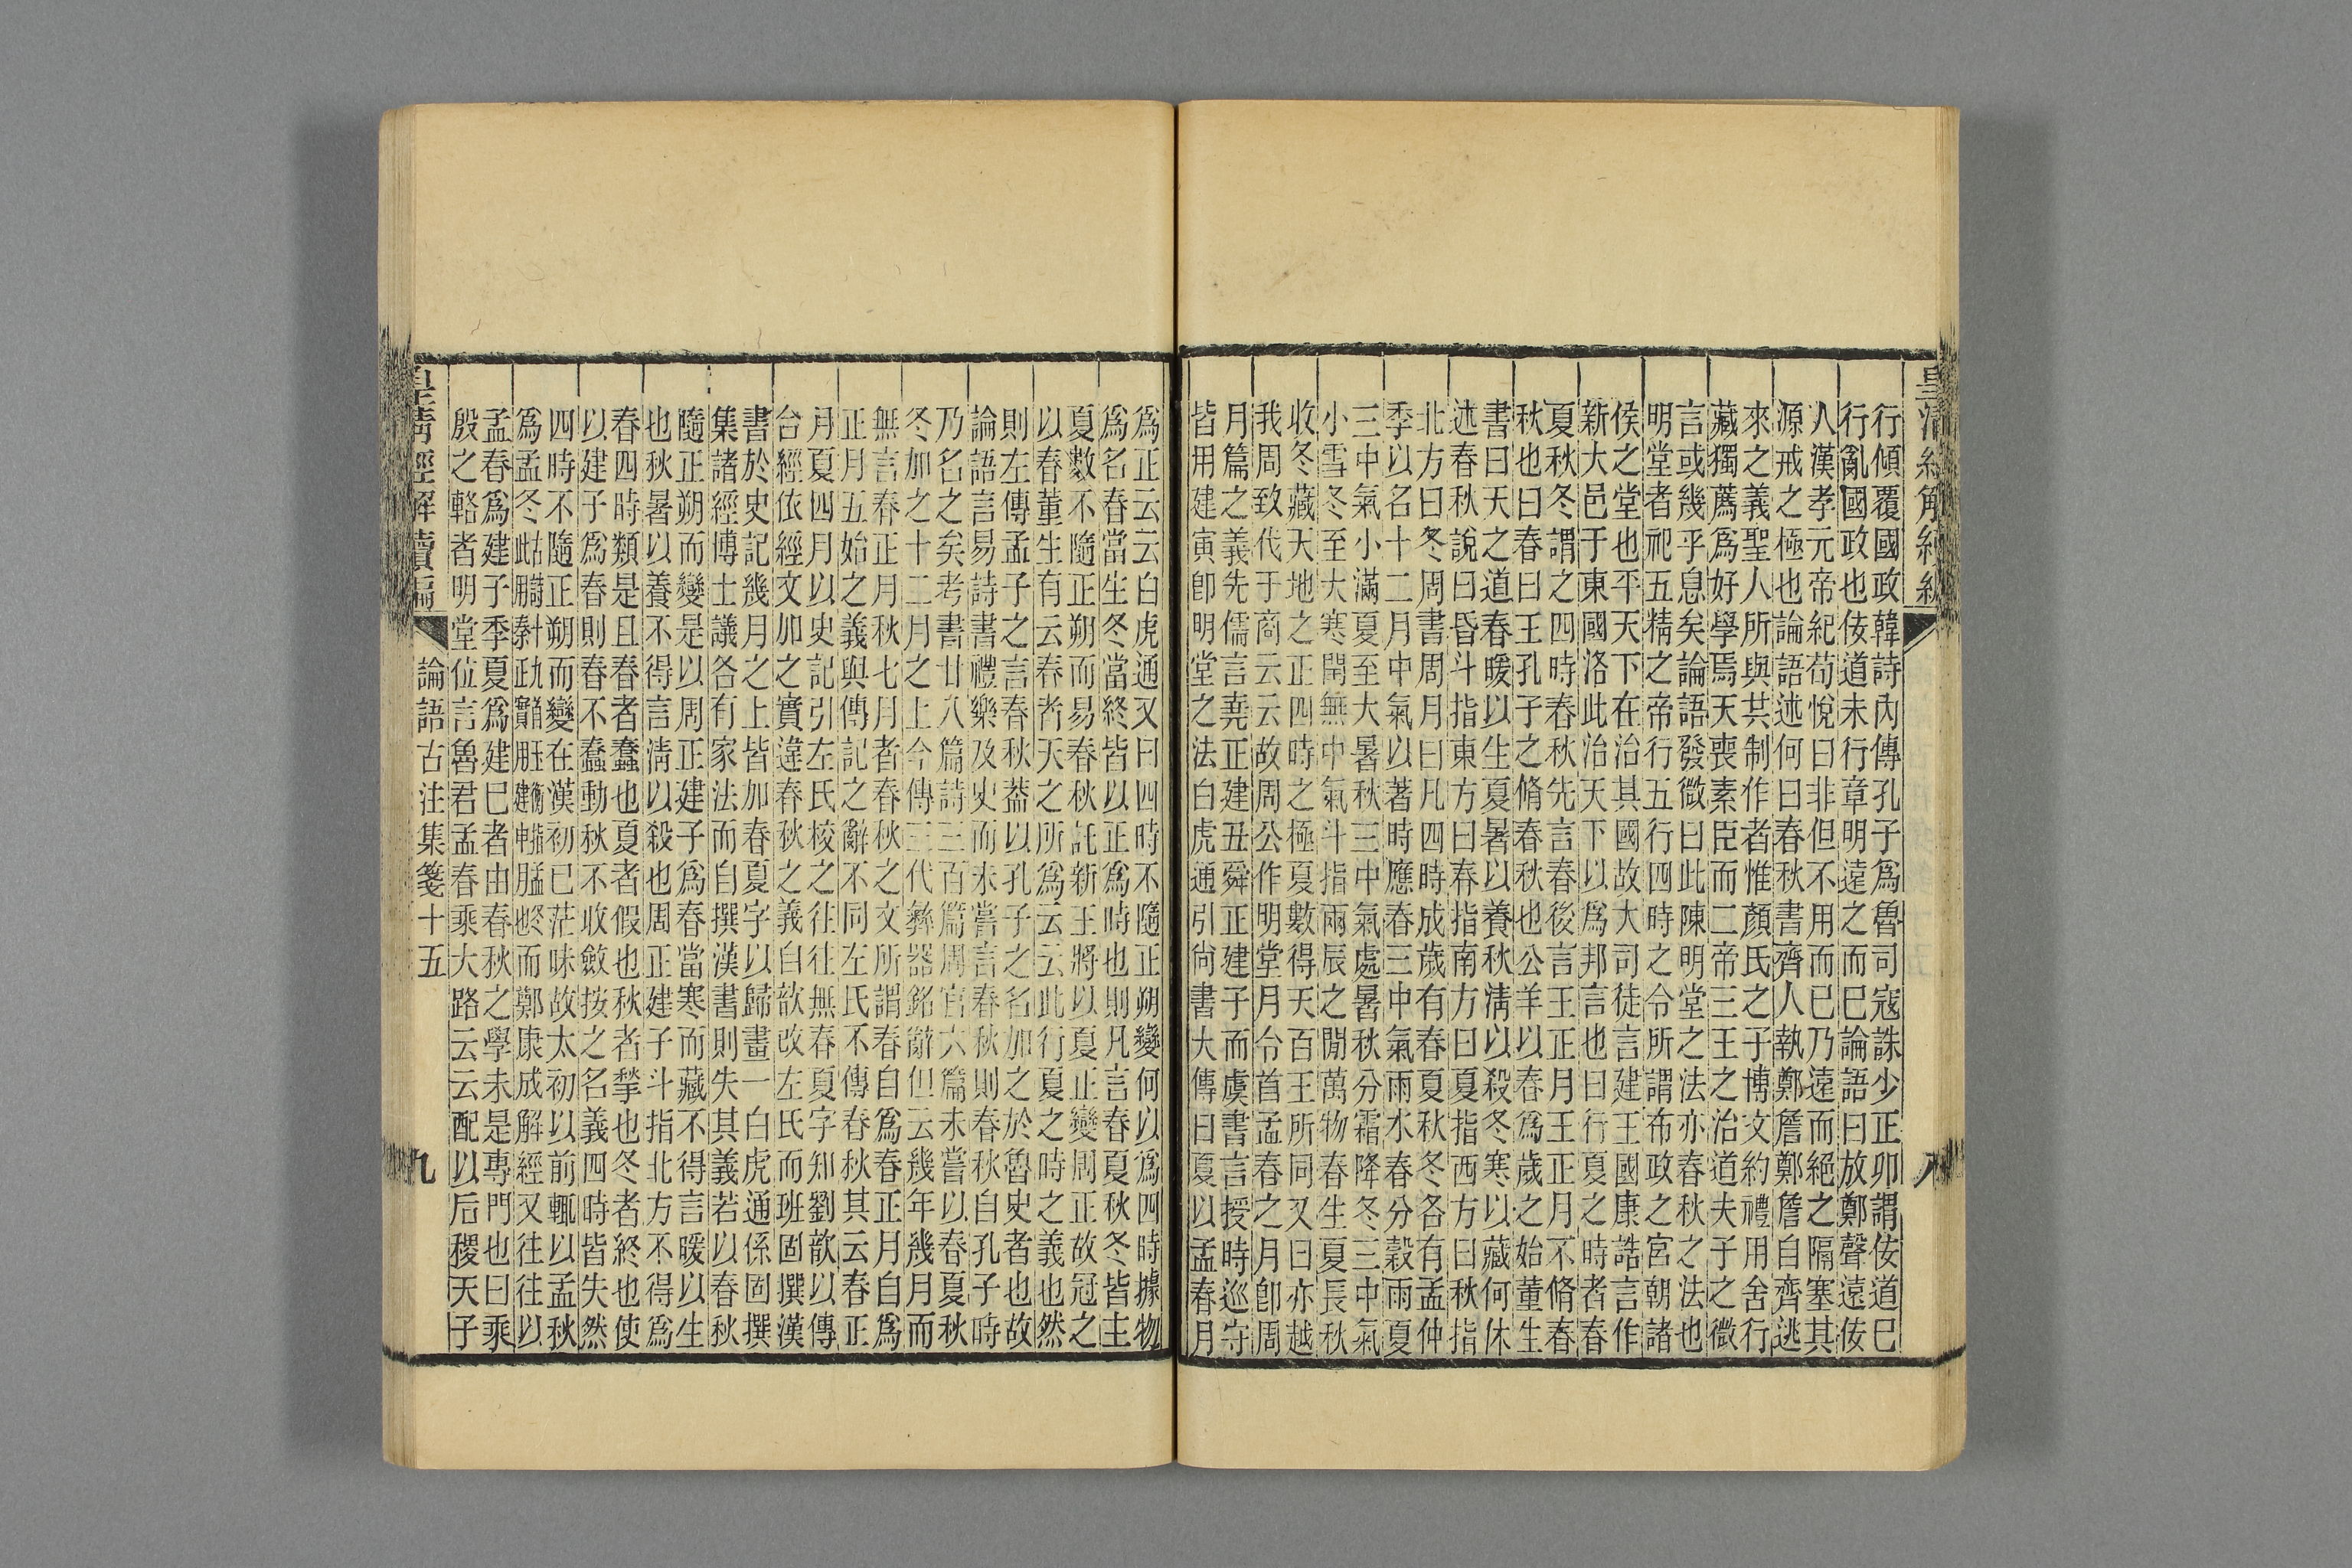 皇清經解續編
八
行傾覆國政韓詩內傳孔子爲魯司寇誅少正卯謂佞道巳
行亂國政也佞道未行章明遠之而巳論語曰放鄭聲遠佞
人漢孝元帝紀荀悅曰非但不用而已乃遠而絕之隔塞其
源戒之極也論語述何曰春秋書齊人執鄭詹鄭詹自齊逃
來之義聖人所與共制作者惟顏氏之子博文約禮用舍行
藏獨薦爲好學焉天喪素臣而二帝三王之治道夫子之微
言或幾乎息矣論語發微曰此陳明堂之法亦春秋之法也
明堂者祀五精之帝行五行四時之令所謂布政之宮朝諸
侯之堂也平天下在治其國故大司徒言建王國康誥言作
新大邑于東國洛此治天下以爲邦言也曰行夏之時者春
夏秋冬謂之四時春秋先言春後言王正月王正月不脩春
秋也曰春曰王孔子之脩春秋也公羊以春爲歲之始董生
書曰天之道春暖以生夏暑以養秋淸以殺冬寒以藏何休
述春秋說曰昏斗指東方曰春指南方曰夏指西方曰秋指
北方曰冬周書周月曰凡四時成歲有春夏秋冬各有孟仲
季以名十二月中氣以著時應春三中氣雨水春分穀雨夏
三中氣小滿夏至大暑秋三中氣處暑秋分霜降冬三中氣
小雪冬至大寒閏無中氣斗指兩辰之閒萬物春生夏長秋
收冬藏天地之正四時之極夏數得天百王所同又曰亦越
我周致代于商云云故周公作明堂月令首孟春之月卽周
月篇之義先儒言堯正建丑舜正建子而虞書言授時巡守
皆用建寅卽明堂之法白虎通引尙書大傳曰夏以孟春月
爲正云云白虎通又曰四時不隨正朔變何以爲四時據物
爲名春當生冬當終皆以正爲時也則凡言春夏秋冬皆主
夏數不隨正朔而易春秋託新王將以夏正變周正故冠之
以春董生有云春者天之所爲云云此行夏之時之義也然
則左傳孟子之言春秋葢以孔子之名加之於魯史者也故
論語言易詩書禮樂及史而未嘗言春秋則春秋自孔子時
乃名之矣考書廿八篇詩三百篇周官六篇未嘗以春夏秋
冬加之十二月之上今傳三代彝器銘辭但云幾年幾月而
無言春正月秋七月者春秋之文所謂春自爲春正月自爲
正月五始之義與傳記之辭不同左氏不傳春秋其云春正
月夏四月以史記引左氏校之往往無春夏字知劉歆以傳
台經依經文加之實違春秋之義自歆改左氏而班固撰漢
書於史記幾月之上皆加春夏字以歸畫一白虎通係固撰
集諸經博士議各有家法而自撰漢書則失其義若以春秋
隨正朔而變是以周正建子爲春當寒而藏不得言暖以生
也秋暑以養不得言淸以殺也周正建子斗指北方不得爲
春四時類是且春者蠢也夏者假也秋者揫也冬者終也使
以建子爲春則春不蠢動秋不收斂按之名義四時皆失然
四時不隨正朔而變在漢初已茫昧故太初以前輒以孟秋
而鄭康成解經又往往以
孟春爲建子季夏爲建巳者由春秋之學未是專門也曰乘
殷之輅者明堂位言魯君孟春乘大路云云配以后稷天子
皇淸經解續編
論語古注集箋十五
九